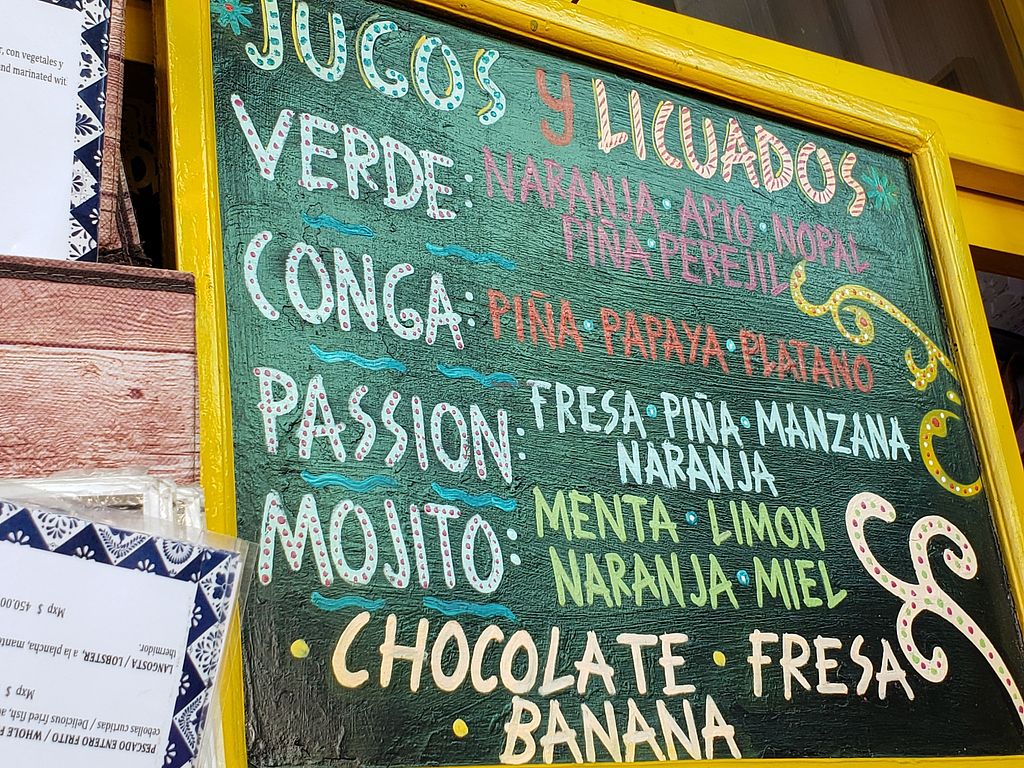 , con vegetales y
nd marinated wit
JUGOS y LICUADOS
VERDE: NARANJA · APIO · NOPAL
PIÑA · PEREJIL
CONGA: PIÑA · PAPAYA · PLATANO
PASSION: FRESA · PIÑA · MANZANA
NARANJA
MOJITO: MENTA · LIMON
NARANJA · MIEL
· CHOCOLATE · FRESA
· BANANA
PESCADO ENTERO FRITO / WHOLE F
cebollas curtidas / Delicious fried fish, a
Mxp $
thermidor.
ANGOSTA / LOBSTER, a la plancha, mante
Mxp $ 450.00